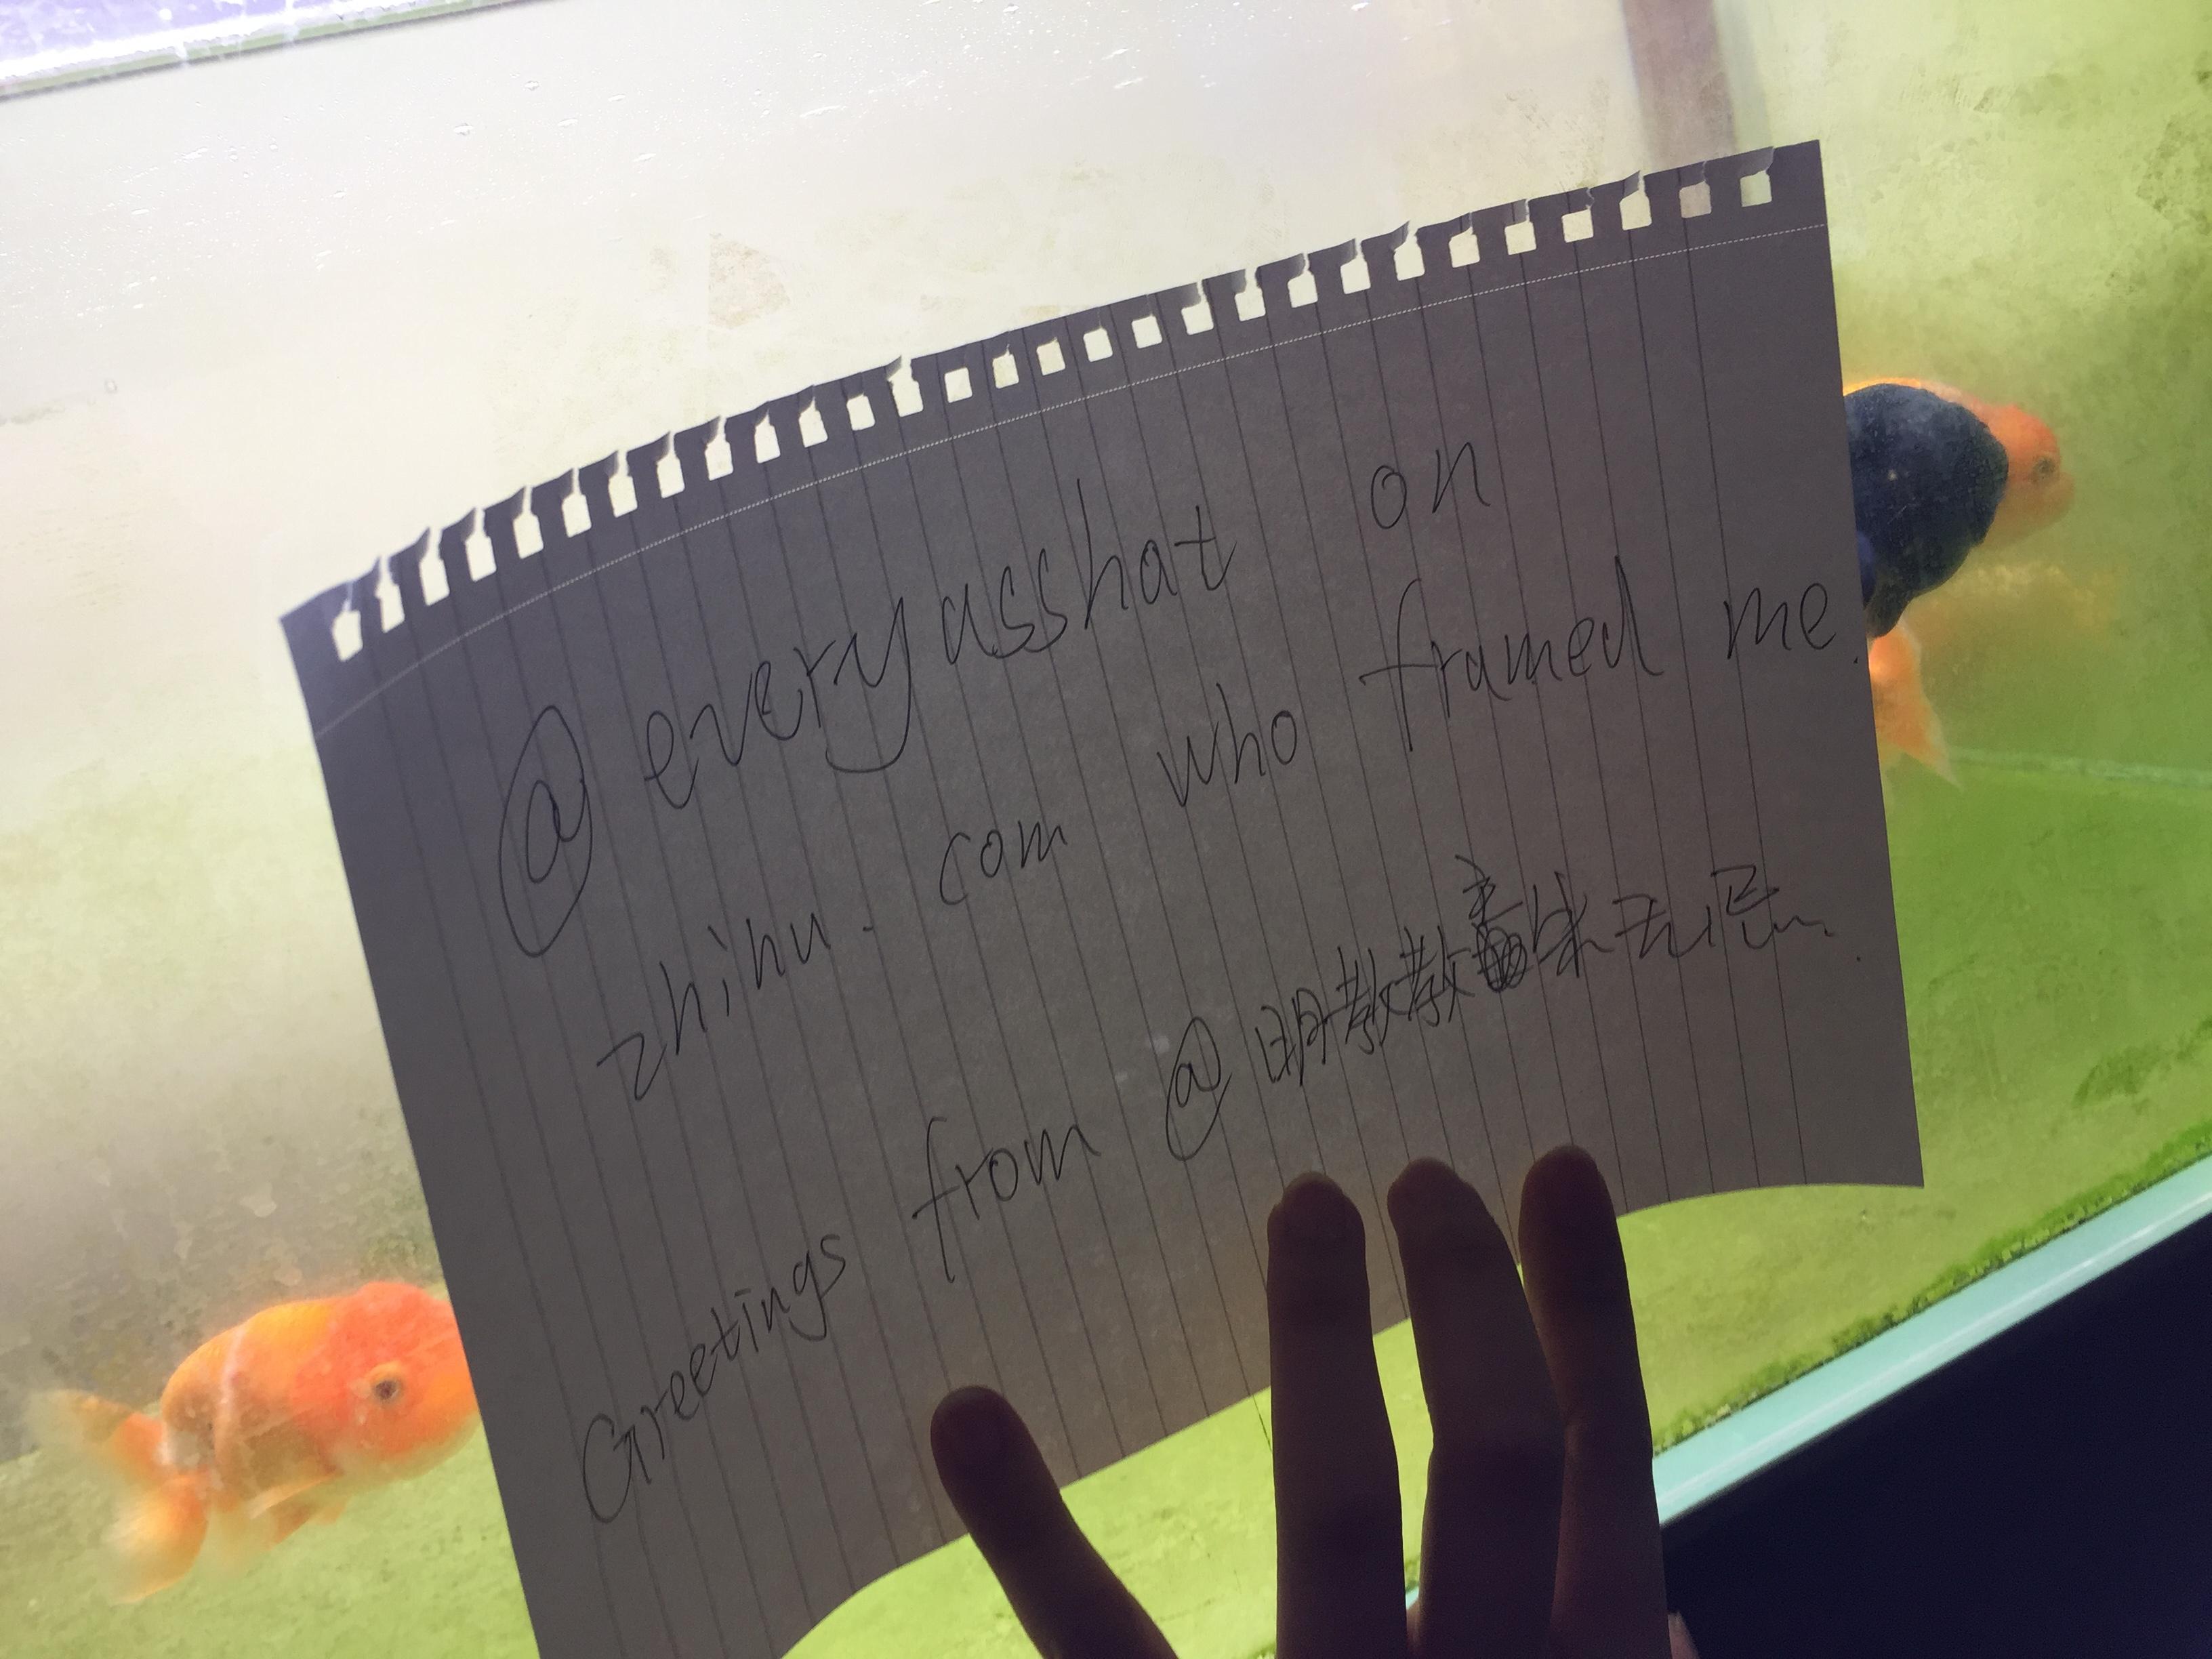 @ every asshat on
zhihu. com who framed me.
Greetings from @明教教主张无忌.